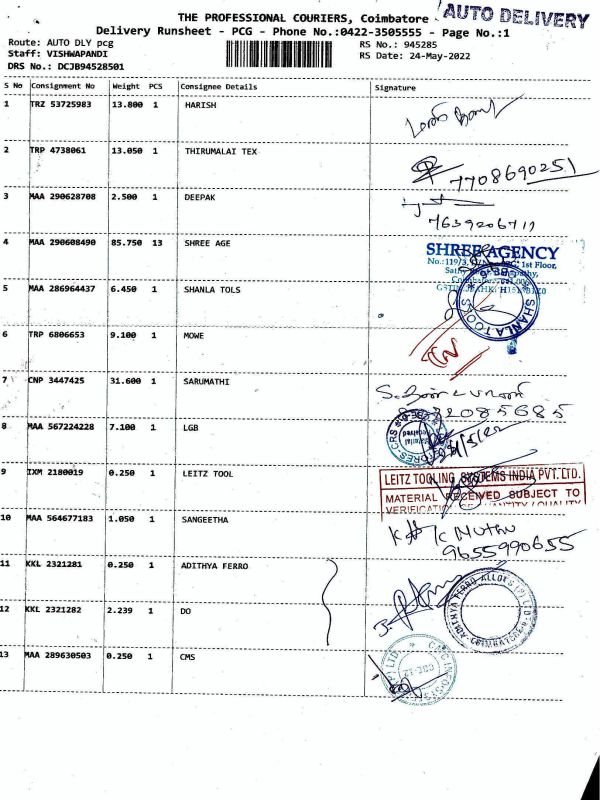 THE PROFESSIONAL COURIERS, Coimbatore
AUTO DELIVERY
Delivery Runsheet - PCG - Phone No.:0422-3505555 - Page No.:1
Route: AUTO DLY pcg
RS No.: 945285
Staff: VISHWAPANDI
RS Date: 24-May-2022
DRS No.: DCJB94528501
S No Consignment No Weight PCS Consignee Details Signature
1 TRZ 53725983 13.800 1 HARISH
2 TRP 4738061 13.050 1 THIRUMALAI TEX
7708690251
3 MAA 290628708 2.500 1 DEEPAK
4 MAA 290608490 85.750 13 SHREE AGE
SHREE AGENCY
1st Floor,
5 MAA 286964437 6.450 1 SHANLA TOLS
SHANLA TOOLS
6 TRP 6806653 9.100 1 MOWE
7 CNP 3447425 31.600 1 SARUMATHI
8 MAA 567224228 7.100 1 LGB
9 IXM 2180019 0.250 1 LEITZ TOOL
LEITZ TOOLING SYSTEMS INDIA PVT. LTD.
MATERIAL RECEIVED SUBJECT TO
10 MAA 564677183 1.050 1 SANGEETHA
9655990655
11 KKL 2321281 0.250 1 ADITHYA FERRO
ADITHYA FERRO ALLOYS
COIMBATORE
12 KKL 2321282 2.239 1 DO
13 MAA 289630503 0.250 1 CMS